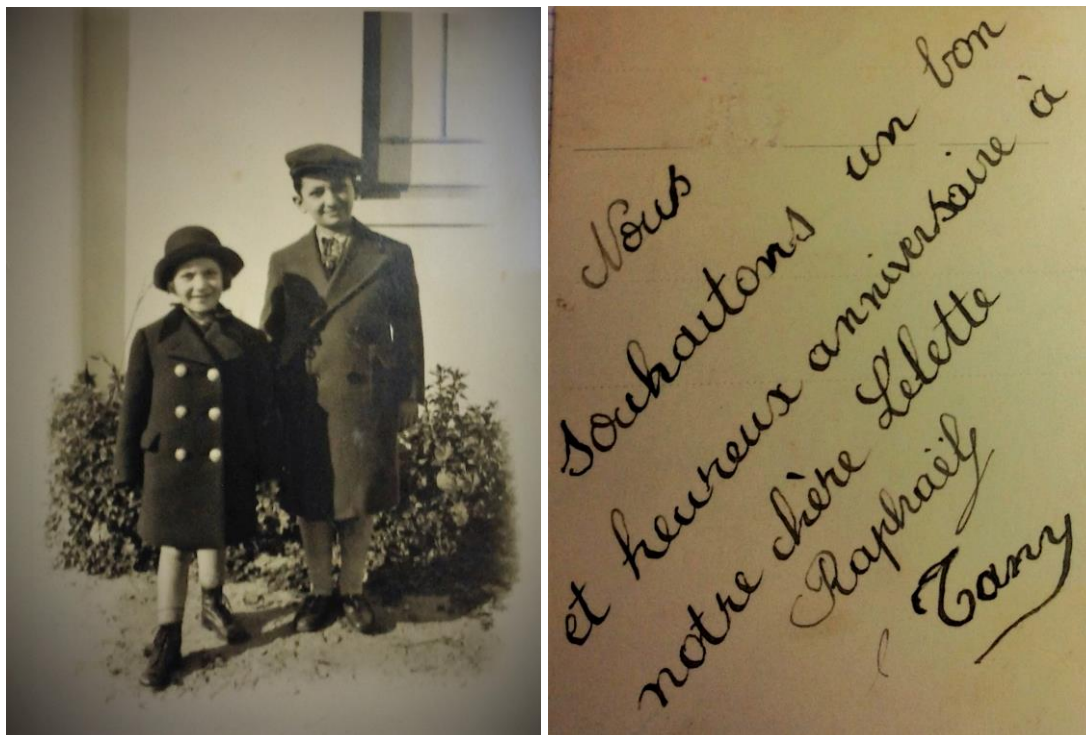 Nous
souhaitons un bon
et heureux anniversaire à
notre chère Lélette
Raphaël
Tany